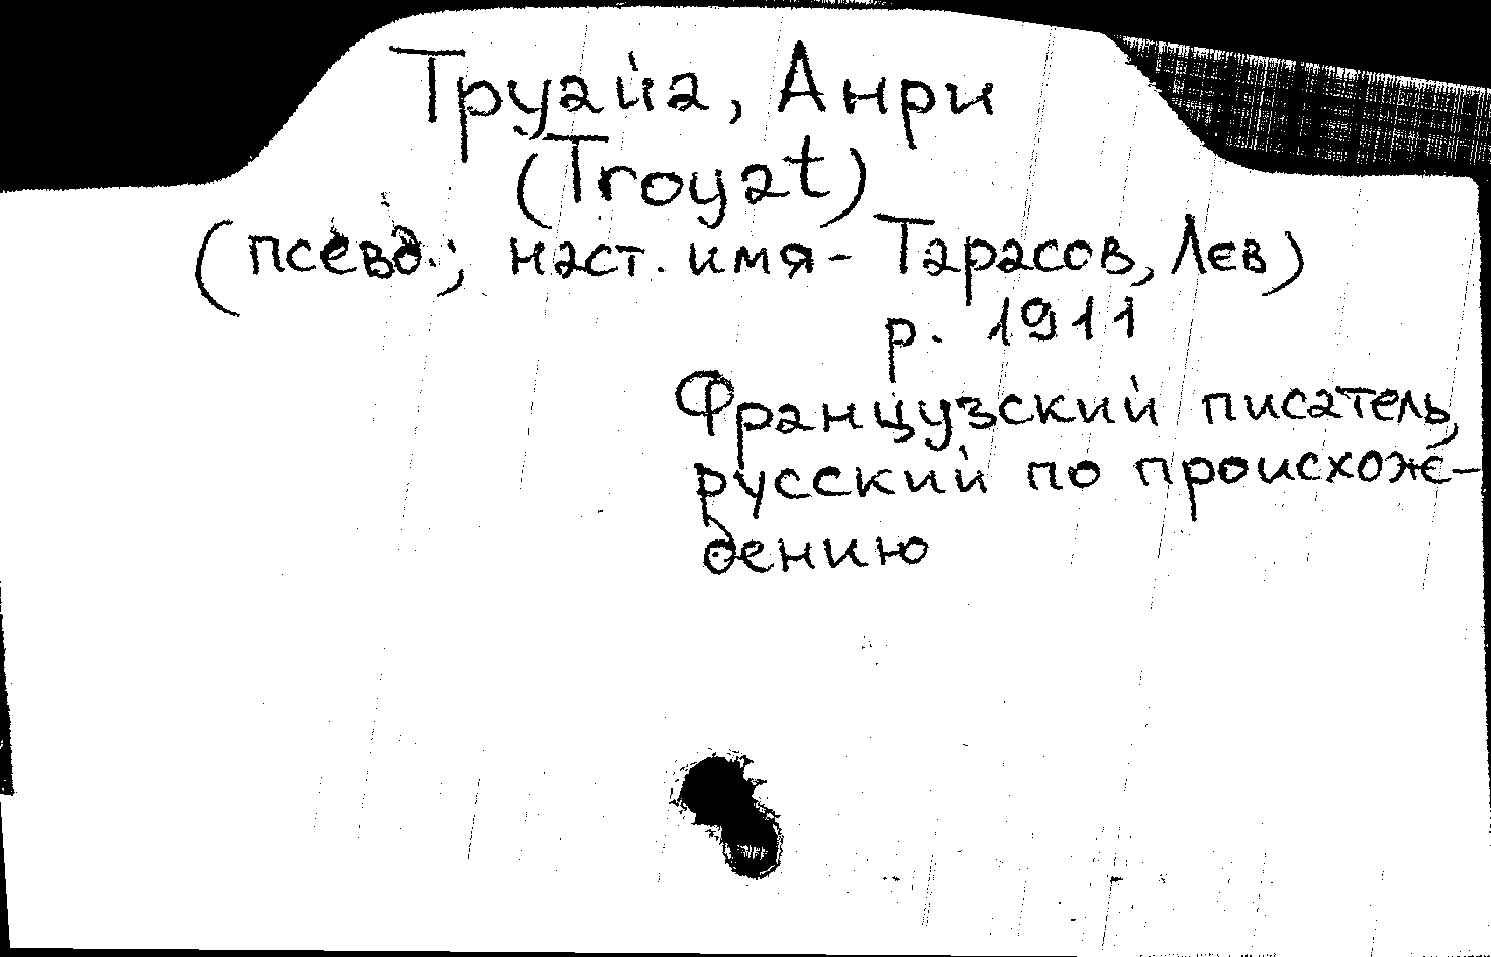 Труайа, Анри
(Troyat)
(псевд.; наст. имя - Тарасов, Лев)
р. 1911
Французский писатель,
русский по происхож-
дению